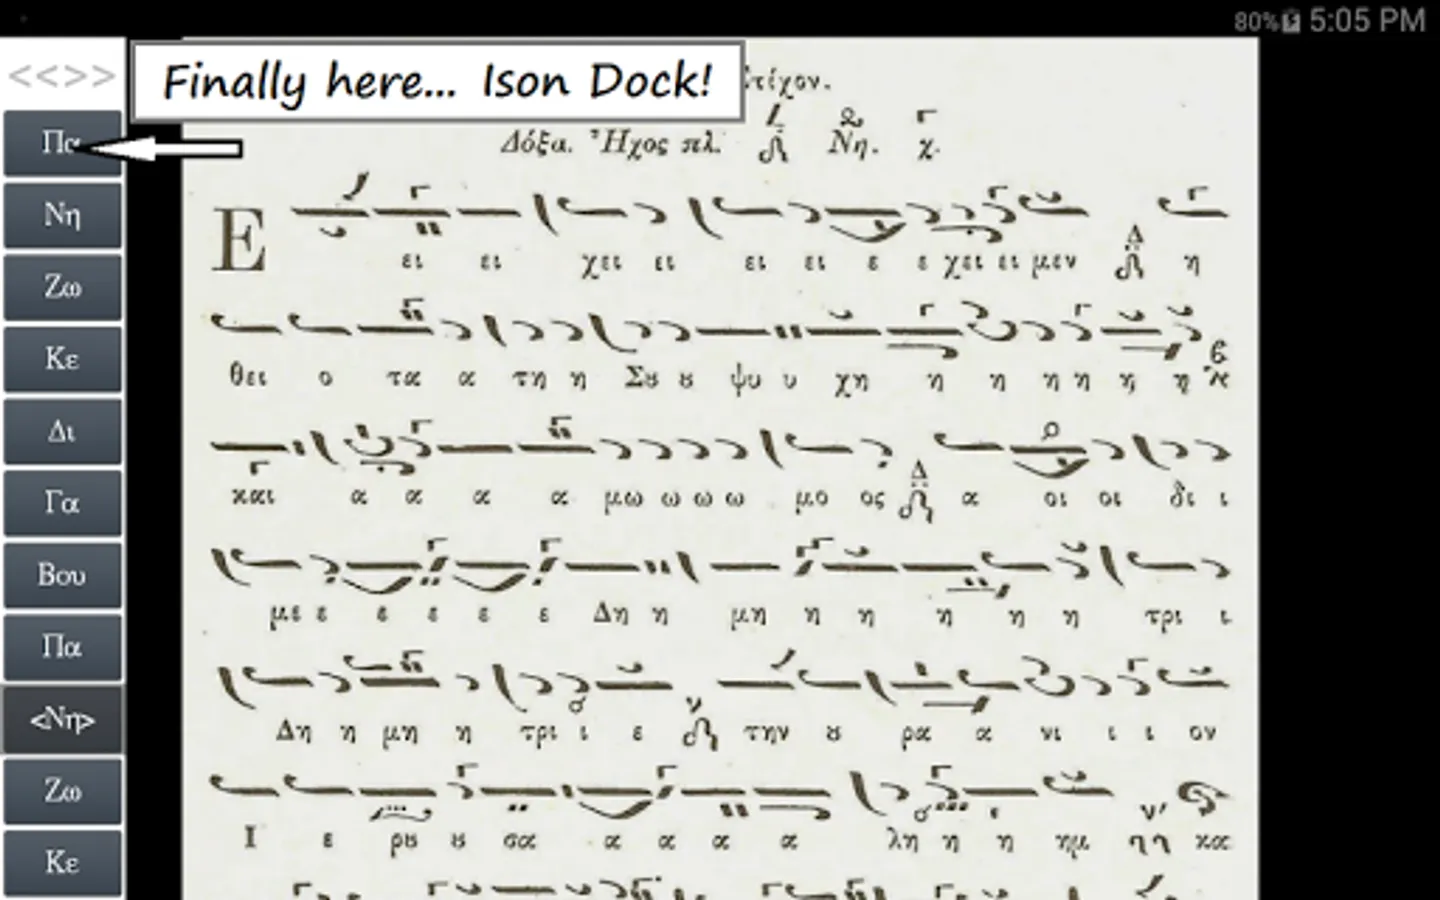 80% 5:05 PM
<<>>
Finally here... Ison Dock!
Πα
Νη
Ζω
Κε
Δι
Γα
Βου
Πα
<Νη>
Ζω
Κε
Δόξα. Ἦχος πλ. Νη. χ.
Ε ει ει χει ει ει ει ε ε χει ει μεν η
θει ο τα α τη η Σȣ ȣ ψυ υ χη η η η η η η
και α α α α μω ω ω ω μο ος α οι οι δι ι
με ε ε ε ε ε Δη η μη η η η η η τρι ι
Δη η μη η τρι ι ε την ȣ ρα α νι ι ι ον
Ι ε ρȣ ȣ σα α α α α λη η η ημ κα